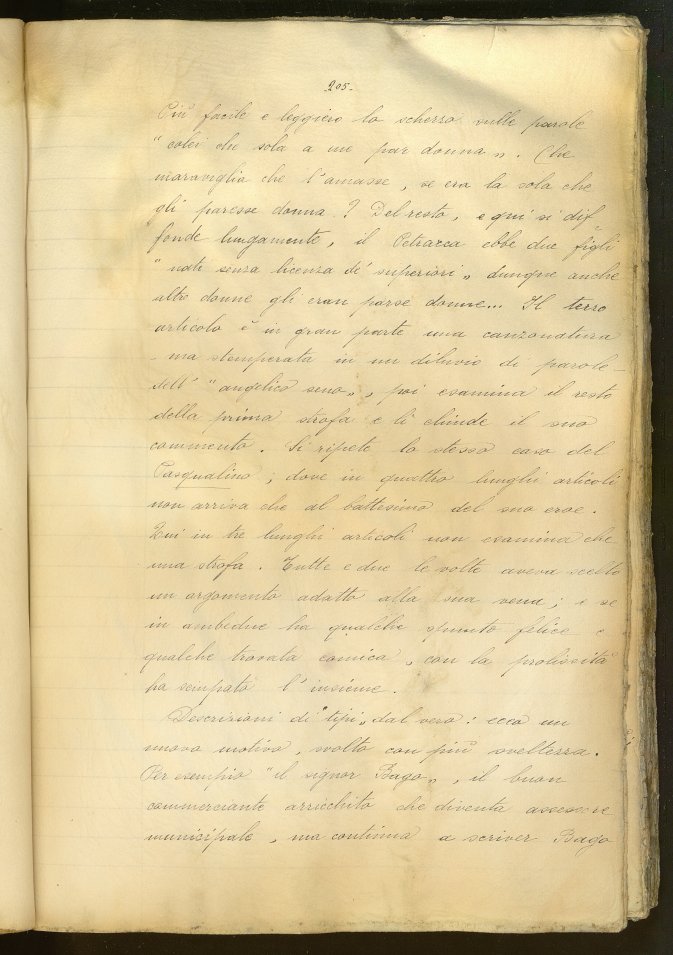 205.
Più facile e leggiero lo scherzo sulle parole
"colei che sola a me par donna„. Che
maraviglia che l'amasse, se era la sola che
gli paresse donna? Del resto, e qui si dif-
fonde lungamente, il Petrarca ebbe due figli
"nati senza licenza de' superiori„ dunque anche
altre donne gli eran parse donne... Il terzo
articolo è in gran parte una canzonatura
- ma stemperata in un diluvio di parole -
dell' "angelico seno„, poi esamina il resto
della prima strofa e lì chiude il suo
commento. Si ripete lo stesso caso del
Pasqualino; dove in quattro lunghi articoli
non arriva che al battesimo del suo eroe.
Qui in tre lunghi articoli non esamina che
una strofa. Tutte e due le volte aveva scelto
un argomento adatto alla sua vena; e se
in ambedue ha qualche spunto felice e
qualche trovata comica, con la prolissità
ha sciupato l'insieme.
Descrizioni di "tipi„ dal vero: ecco un
nuovo motivo, svolto con più sveltezza.
Per esempio "il signor Bago„, il buon
commerciante arricchito che diventa assessore
municipale, ma continua a scriver Bago